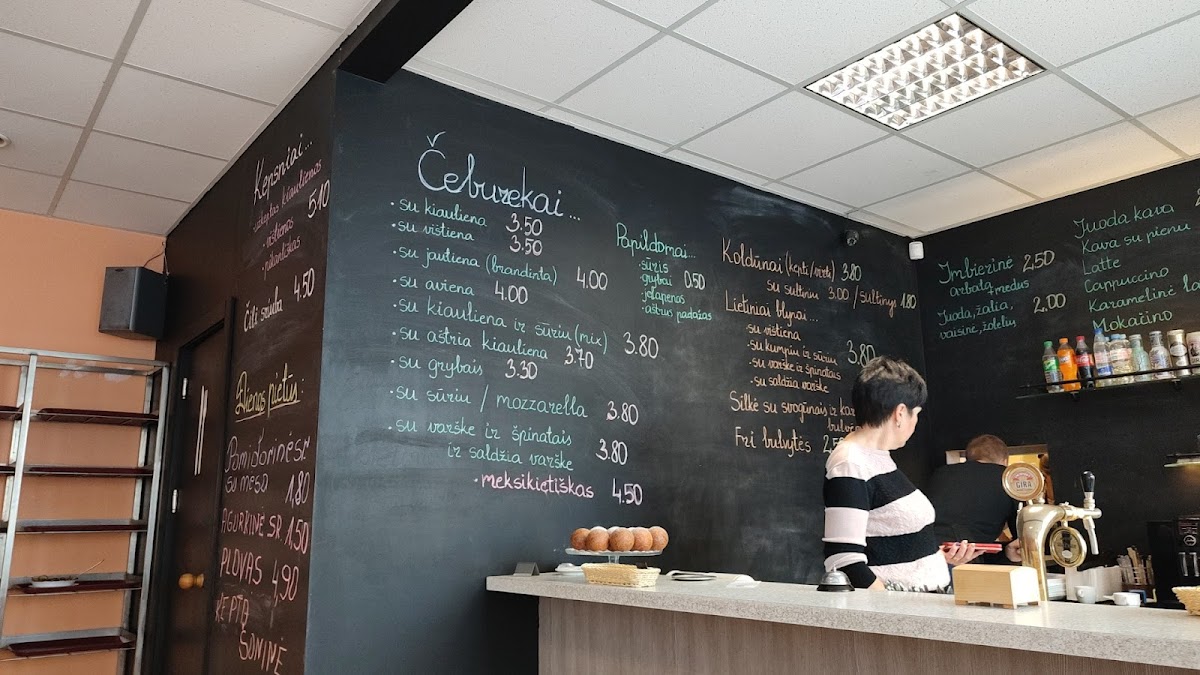 Kepsniai...
kiaulienos
5.10
· vištienos
Čili sriuba 4.50
Dienos pietūs:
Pomidorinė sr.
su mėsa 1,80
AGURKINĖ SR. 1,50
PLOVAS
4,90
KEPTA
ŠONINĖ
Čeburekai...
· su kiauliena 3.50
· su vištiena 3.50
· su jautiena (brandinta) 4.00
· su aviena 4.00
· su kiauliena ir sūriu (mix) 3.80
· su aštria kiauliena 3.70
· su grybais 3.30
· su sūriu / mozzarella 3.80
· su varške ir špinatais
ir saldžia varške 3.80
· meksikietiškas 4.50
Papildomai...
· sūris
· grybai 0.50
· jalapenas
· aštrus padažas
Koldūnai (kepti/virti) 3.80
su sultiniu 3.00 / sultinys 1.80
Lietiniai blynai...
· su vištiena
· su kumpiu ir sūriu 3.80
· su varške ir špinatais
· su saldžia varške
Silkė su svogūnais ir
Fri bulvytės
Imbierinė 2.50
arbata, medus
Juoda, žalia, 2.00
vaisinė, žolelių
Juoda kava
Kava su pienu
Latte
Cappuccino
Karamelinė
Mokačino
GIRA